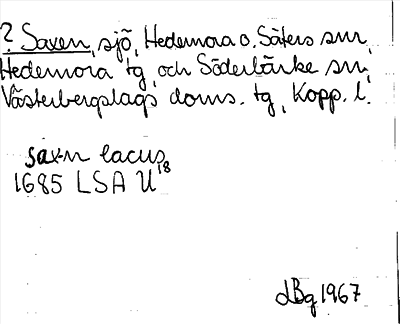 ? Saxen, sjö, Hedemora o. Säters snr,
Hedemora tg, och Söderbärke sn,
Västerbergslags doms. tg, Kopp. l.
saxn lacus
1685 LSA U18
dBg 1967